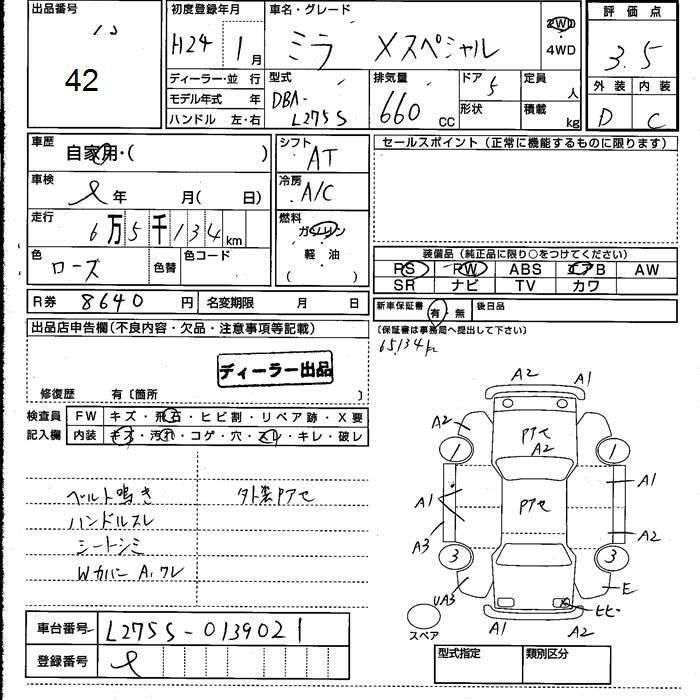 出品番号
42
初度登録年月
H24 1月
車名・グレード
ミラ Xスペシャル
2WD
4WD
評価点
3.5
外装 内装
D C
ディーラー・並行
モデル年式 年
ハンドル 左・右
型式
DBA-
L275S
排気量
660 CC
ドア
5
形状
定員
人
積載
kg
車歴
自家用・( )
車検
年 月( 日)
走行
6万5千134km
色
ローズ
色替
色コード
シフト
AT
冷房
A/C
燃料
ガソリン
軽油
( )
セールスポイント(正常に機能するものに限ります)
装備品(純正品に限り○をつけてください)
PS PW ABS エアB AW
SR ナビ TV カワ
R券 8640円 名変期限 月 日
新車保証書 有・無 後日品
(保証書は事務局へ提出して下さい)
65134k
出品店申告欄(不良内容・欠品・注意事項等記載)
ディーラー出品
修復歴 有〔箇所 〕
検査員 FW キズ・飛石・ヒビ割・リペア跡・X要
記入欄 内装 キズ・汚れ・コゲ・穴・スレ・キレ・破レ
ベルト鳴き 外装Pアセ
ハンドルスレ
シートシミ
Wカバー A,ワレ
A2 A1
A2 Pアセ
A2
1 1
A1 Pアセ A1
A3 A2
3 3
UA3 E
ヒビ
A1 A2
スペア
車台番号 L275S-0139021
登録番号
型式指定 類別区分